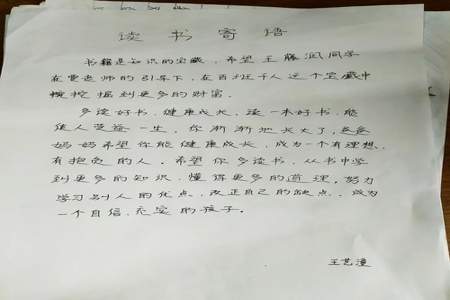 读书寄语
书籍是知识的宝藏,希望王滕润同学
在曹老师的引导下,在百班千人这个宝藏中
挖掘到更多的财富。
多读好书,健康成长,读一本好书,能
使人受益一生,你渐渐地长大了,爸爸
妈妈希望你能健康成长,成为一个有理想、
有抱负的人。希望你多读书,从书中学
到更多的知识,懂得更多的道理。努力
学习别人的优点,改正自己的缺点,成为
一个自信、充实的孩子。
王艺潼